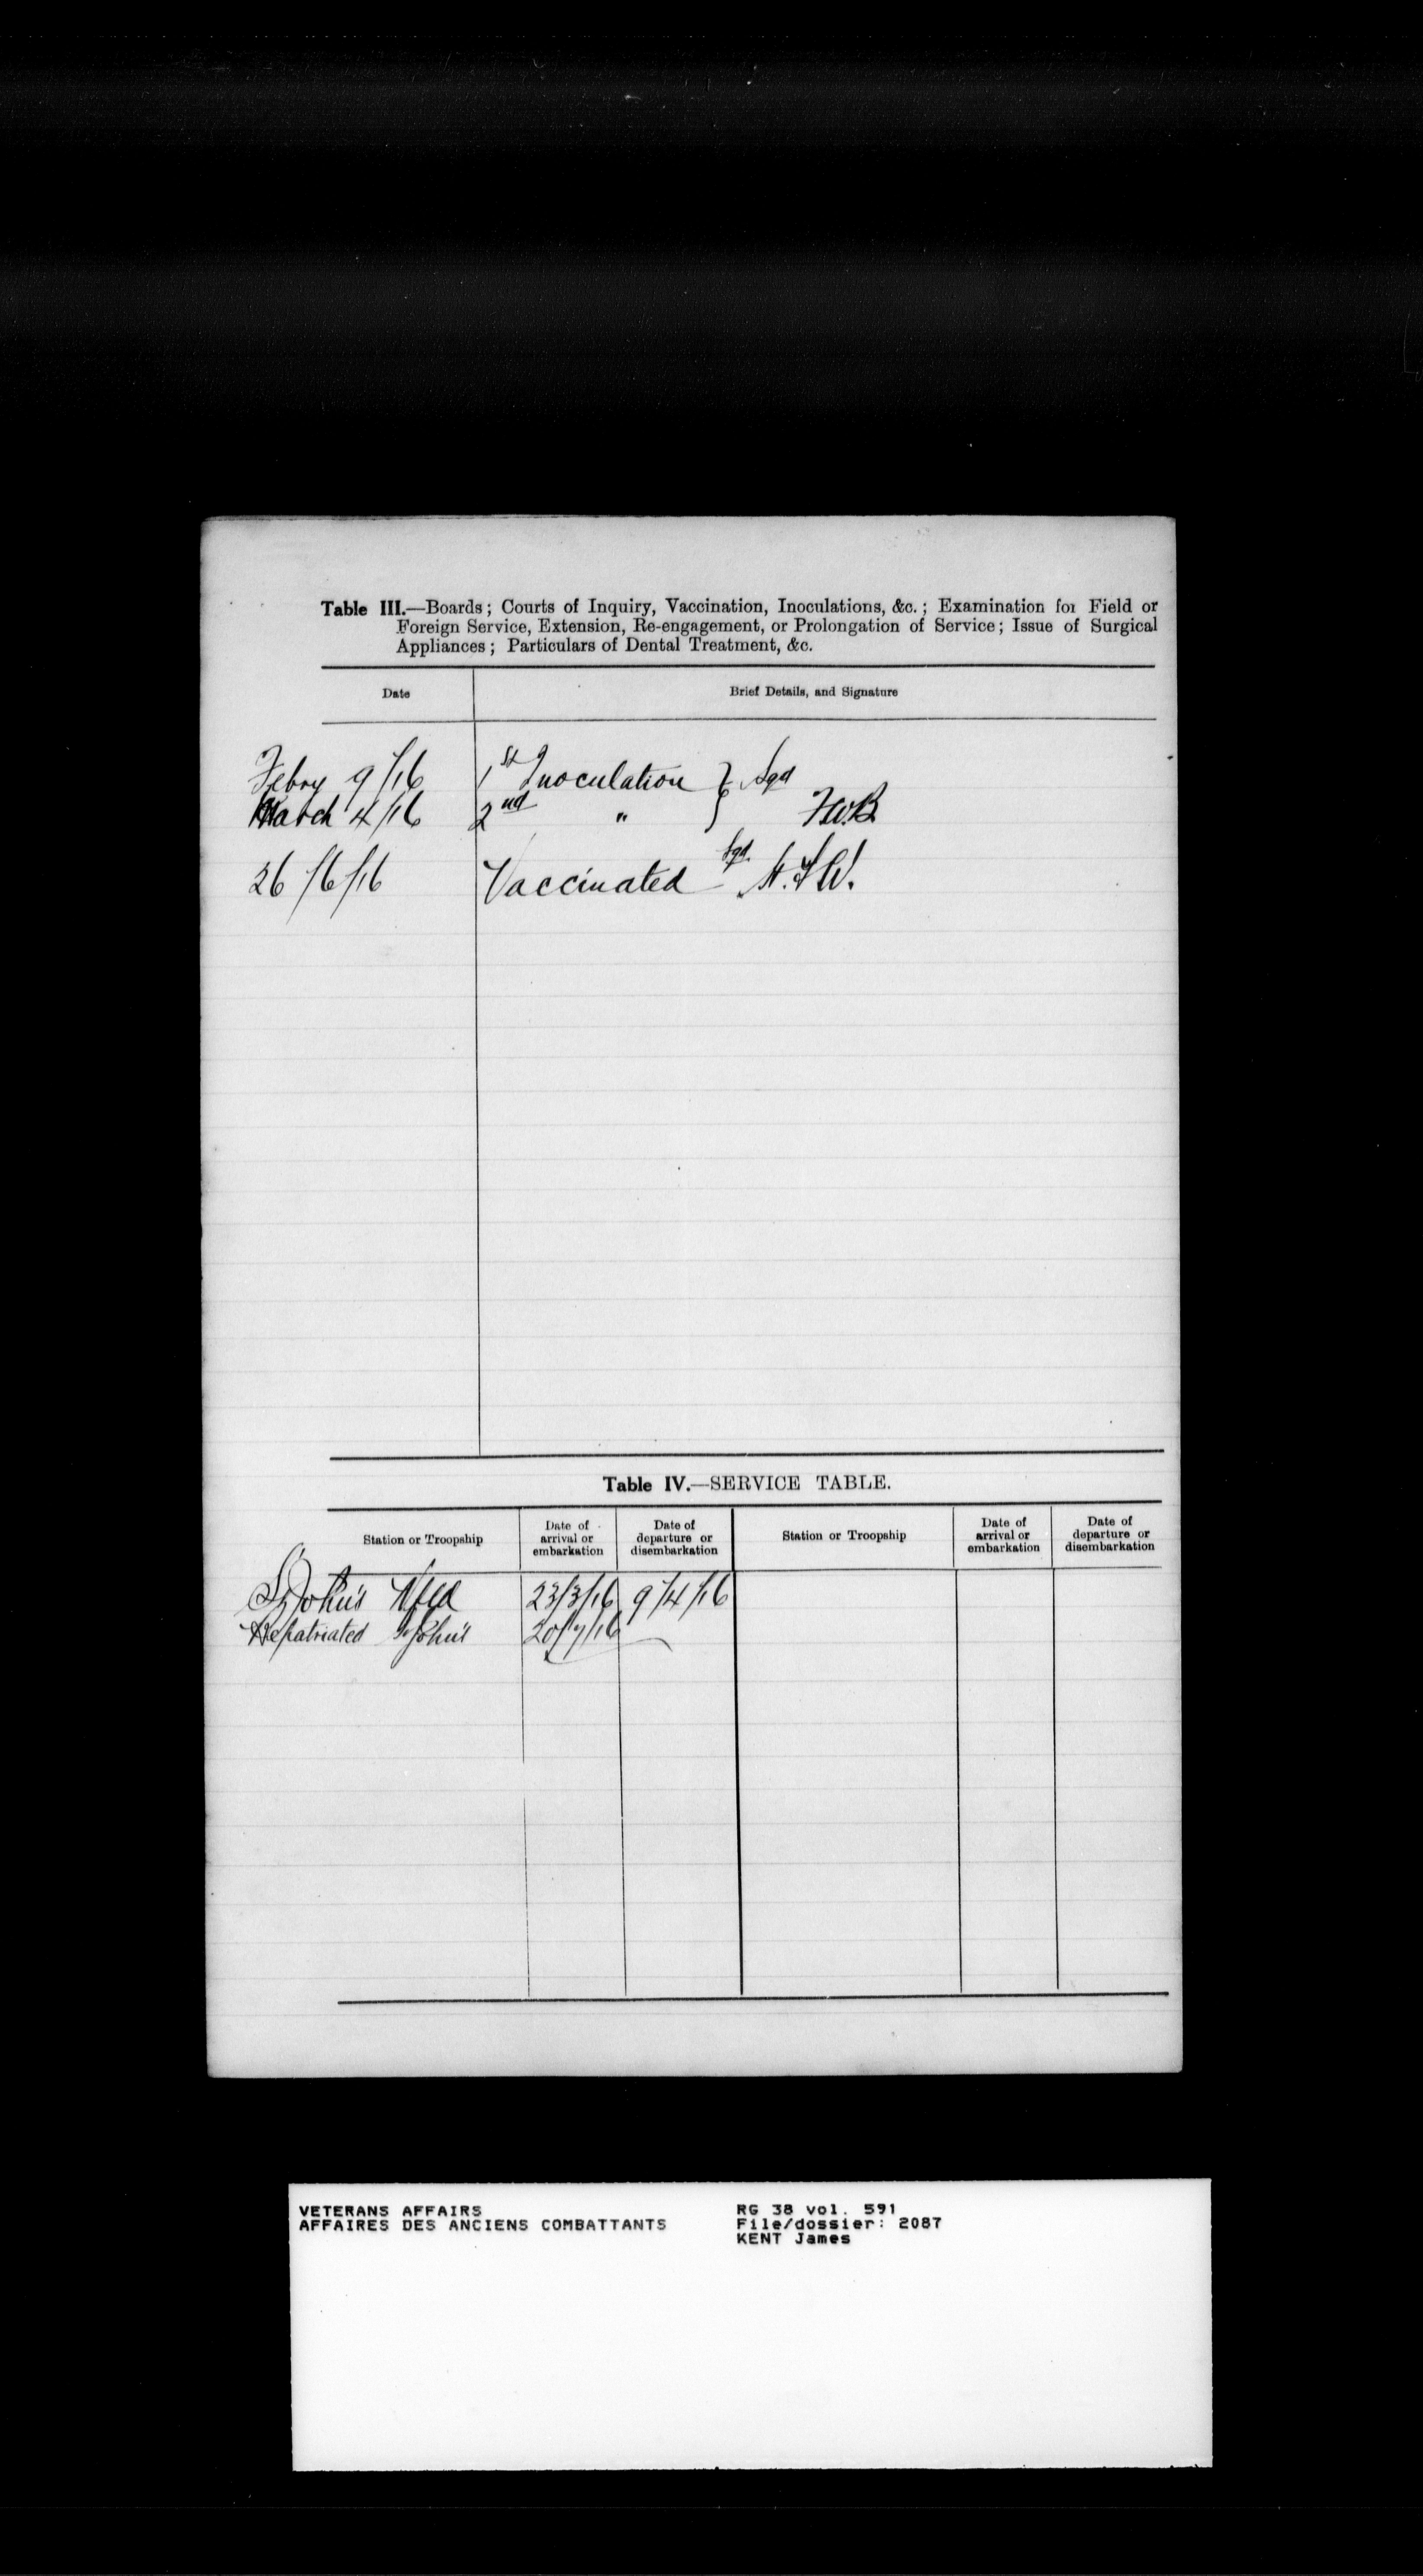 Table III.—Boards; Courts of Inquiry, Vaccination, Inoculations, &c.; Examination for Field or
Foreign Service, Extension, Re-engagement, or Prolongation of Service; Issue of Surgical
Appliances; Particulars of Dental Treatment, &c.
Date Brief Details, and Signature
Febry 9/16 1st Inoculation } Sgd
March 4/16 2nd " } F.W.B.
26/6/16 Vaccinated Sgd.
Table IV.—SERVICE TABLE.
Station or Troopship Date of arrival or embarkation Date of departure or disembarkation Station or Troopship Date of arrival or embarkation Date of departure or disembarkation
St John's Nfld 23/3/16 9/4/16
Repatriated St John's 20/7/16
VETERANS AFFAIRS RG 38 vol. 591
AFFAIRES DES ANCIENS COMBATTANTS File/dossier: 2087
KENT James